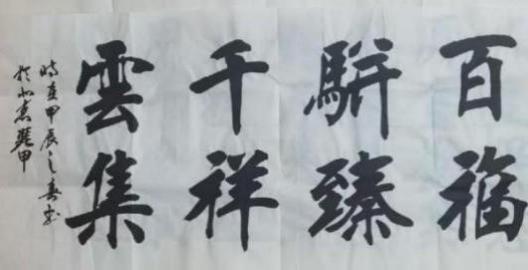 百福
駢臻
千祥
雲集
時在甲辰之春書
於北京